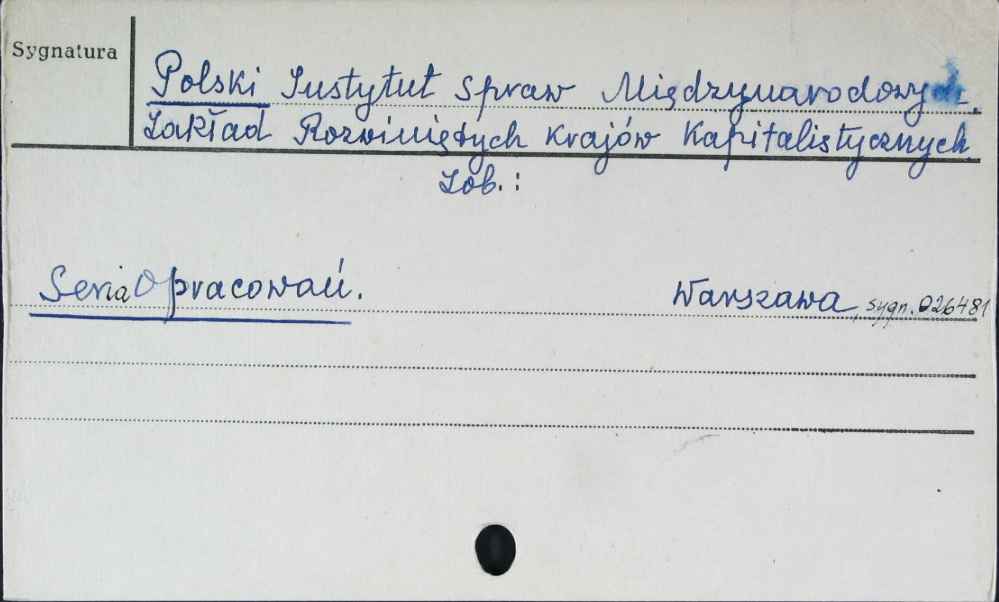 Sygnatura
Polski Instytut Spraw Międzynarodowych.
Zakład Rozwiniętych Krajów Kapitalistycznych
Zob.:
Seria Opracowań. Warszawa, sygn. 026481